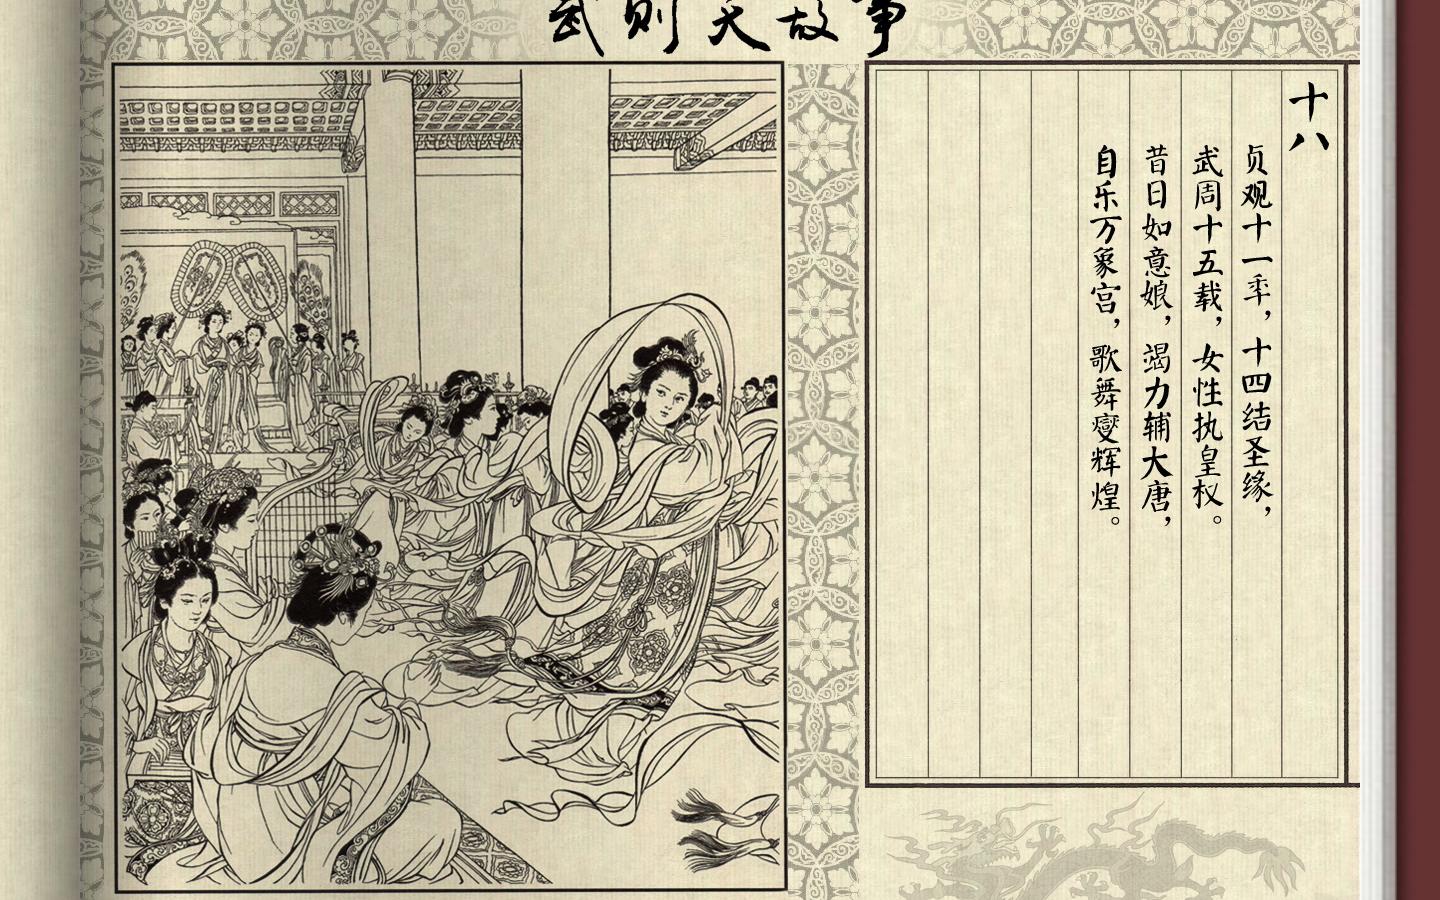 武则天故事
十八
贞观十一年，十四结圣缘，
武周十五载，女性执皇权。
昔日如意娘，竭力辅大唐，
自乐万象宫，歌舞燮辉煌。